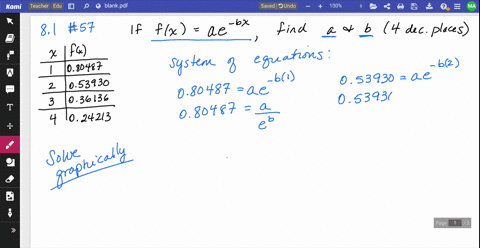 Kami
Teacher
Edu
blank.pdf
Saved
Undo
120%
MA
8.1 #57
If f(x) = ae^{-bx}, find a & b (4 dec. places)
x f(x)
1 0.80487
2 0.53930
3 0.36136
4 0.24213
System of equations:
0.80487 = ae^{-b(1)}
0.80487 = a/e^b
0.53930 = ae^{-b(2)}
0.5393
Solve
graphically